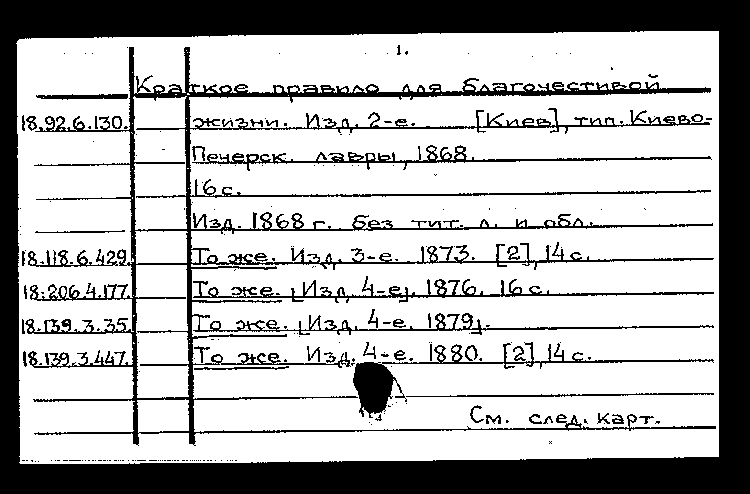 1.
Краткое правило для благочестивой
18.92.6.130. жизни. Изд. 2-е. [Киев], тип. Киево-
Печерск. лавры, 1868.
16 с.
Изд. 1868 г. без тит. л. и обл.
18.118.6.429. То же. Изд. 3-е. 1873. [2], 14 с.
18.206.4.177. То же. [Изд. 4-е]. 1876. 16 с.
18.139.3.35. То же. [Изд. 4-е. 1879].
18.139.3.447. То же. Изд. 4-е. 1880. [2], 14 с.
См. след. карт.